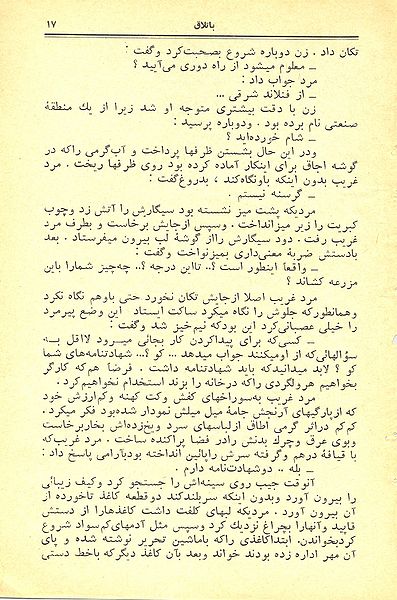 باتلاق ۱۷
تکان داد . زن دوباره شروع بصحبت‌کرد وگفت :
ــ معلوم میشود از راه دوری می‌آیید ؟
مرد جواب داد :
ــ از فنلاند شرقی ...
زن با دقت بیشتری متوجه او شد زیرا از یك منطقهٔ
صنعتی نام برده بود . ودوباره پرسید :
ــ شام خورده‌اید ؟
ودر این حال بشستن ظرفها پرداخت و آب‌گرمی راکه در
گوشه اجاق برای اینکار آماده کرده بود روی ظرفها ریخت . مرد
غریب بدون اینکه باونگاه‌کند ، بدروغ‌گفت :
ــ گرسنه نیستم
مردیکه پشت میز نشسته بود سیگارش را آتش زد وچوب
کبریت را زیر میز‌انداخت . وسپس ازجایش برخاست و بطرف مرد
غریب رفت . دود سیگارش رااز گوشهٔ لب بیرون میفرستاد . بعد
بادستش ضربهٔ معنی‌داری بمیزنواخت وگفت :
ــ واقعاً اینطور است ؟.. تااین درجه ؟.. چه‌چیز شمارا باین
مزرعه کشاند ؟
مرد غریب اصلا ازجایش تکان نخورد حتی باوهم نگاه نکرد
وهمانطورکه جلوش را نگاه میکرد ساکت ایستاد این وضع پیرمرد
را خیلی عصبانی‌کرد این بودکه نیم‌خیز شد وگفت :
ــ کسی‌که برای پیداکردن کار بجائی میــرود لااقل بــه
سؤالهائی‌که از اومیکنند جواب میدهد ... کو ؟... شهادتنامه‌های شما
کو ؟ لابد میدانیدکه باید شهادتنامه داشت . فرضا هم‌که کارگر
بخواهیم هرولگردی راکه درخانه را بزند استخدام نخواهیم‌کرد .
مرد غریب به‌سوراخهای کفش وکت کهنه وکم‌ارزش خود
که ازپارگیهای آرنجش جامهٔ میل میلش نمودار شده‌بود فکر میکرد .
کم‌کم دراثر گرمی اطاق ازلباسهای سرد ویخ‌زده‌اش بخاربرخاست
وبوی عرق وچرك بدنش رادر فضا پراکنده ساخت . مرد غریب‌که
با قیافهٔ درهم وگرفته سرش راپائین انداخته بودبآرامی پاسخ داد :
ــ بله .. دوشهادت‌نامه دارم .
آنوقت جیب روی سینه‌اش را جستجو کرد وکیف زیبـائی
را بیرون آورد وبدون اینکه سربلندکند دوقطعه کاغذ تاخورده از
آن بیرون آورد . مردیکه لبهای کلفت داشت کاغذهارا از دستش
قاپید وآنهارا بچراغ نزدیك کرد وسپس مثل آدمهای‌کم‌سواد شروع
کردبخواندن. ابتداکاغذی راکه باماشین تحریر نوشته شده و پای
آن مهر اداره زده بودند خواند وبعد بآن کاغذ دیگرکه باخط دستی